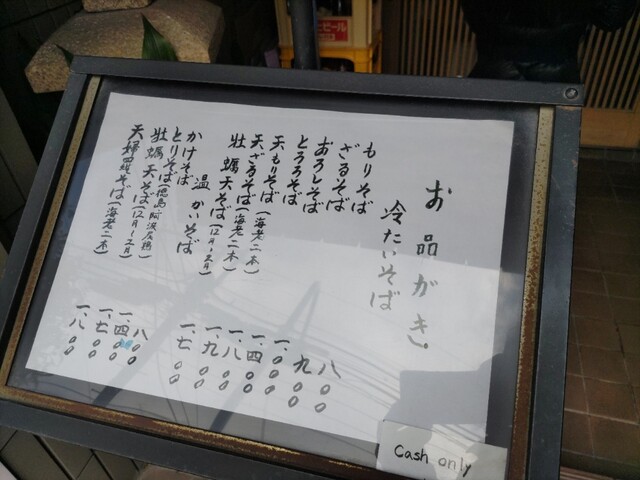 お品がき
冷たいそば
もりそば 八〇〇
ざるそば 九〇〇
おろしそば 一、〇〇〇
とろろそば 一、四〇〇
天もりそば(海老二本) 一、八〇〇
天ざるそば(海老二本) 一、九〇〇
牡蠣天そば(12月〜2月) 一、七〇〇
温かいそば
かけそば 八〇〇
とりそば(徳島阿波尾鶏) 一、四〇〇
牡蠣天そば(12月〜2月) 一、七〇〇
天婦羅そば(海老二本) 一、八〇〇
Cash only
ビール